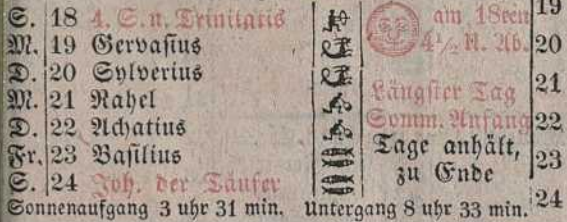 S. 18 4. S. n. Trinitatis am 18ten 19
M. 19 Gervasius 4 1/2 N. Ab. 20
D. 20 Sylverius
M. 21 Rahel Längster Tag 21
D. 22 Achatius Somm. Anfang 22
Fr. 23 Basilius Tage anhält, 23
S. 24 Joh. der Täufer zu Ende
Sonnenaufgang 3 uhr 31 min. Untergang 8 uhr 33 min. 24